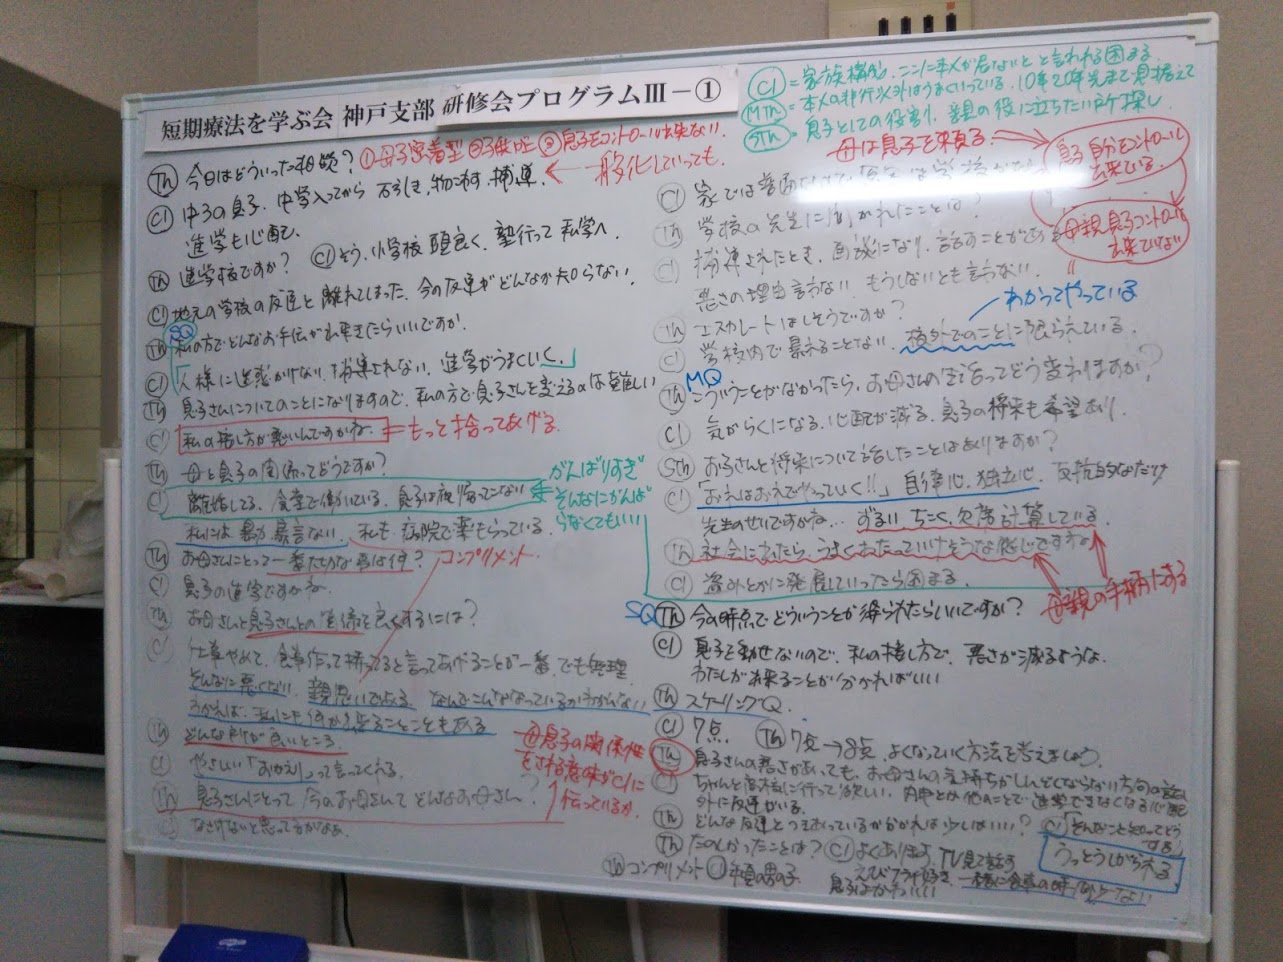 短期療法を学ぶ会 神戸支部 研修会プログラムⅢ－①
Cl =家族構成、ここに本人が居ないと と言われる困まる
MTh =本人の非行以外はうまくいっている、10年20年先まで見据えて
STh 息子としての役割、親の役に立ちたい所探し
Th 今日はどういった相談？ ①母子密着型 ③息子をコントロール出来ない
← 一般化していっても
Cl 中3の息子、中学入ってから 万引き、物こわす、補導、
進学も心配で、
Th 進学校ですか？ Cl そう、小学校 頭良く、塾行って 私学へ
Cl 地元の学校の友達と 離れてしまった、今の友達がどんなか知らない
SQ
Th 私の方でどんなお手伝が出来ましたらいいですか
Cl 「人様に迷惑かけない、補導されない、進学がうまくいく。」
Th 息子さんについてのことになりますので、私の方で息子さんを変えるのは難しい
Cl 私の接し方が悪いんですかね ← もっと拾ってあげる
Th 母と息子の関係ってどうですか？
Cl 離婚してる、食堂で働いている、息子は夜帰ってこない ← がんばりすぎ
そんなにがんば
らなくてもいい
私には 暴力 暴言ない、私も 病院で薬もらっている
Th お母さんにとって一番大切な事は何？ コンプリメント
Cl 息子の進学ですかね
Th お母さんと息子さんとの関係を良くするには？
Cl 仕事やめて、食事作って待ってると言ってあげることが一番、でも無理
そんなに悪くない、親思いである、なんでこんななっているか分かんない
わかれば、私にも何か出来ることもある
Th どんなだけが良いところ
Cl やさしい「おかえり」って言ってくれる
Th 息子さんにとって 今のお母さんて どんなお母さん？
Cl なさけないと思ってるかなぁ
母息子の関係性
をきれる意味がClに
伝っているか
母は息子を来頼る → 息子 自分をコントロール
出来ている
母親 息子コントロール
出来ていない
Cl 家では普通
Th 学校の先生に聞かれたことは？
Cl 補導されたとき、面談になり、話すことがある
悪さの理由言わない、もうしないとも言わない
Th エスカレートはしそうですか？ わかってやっている
Cl 学校内で暴れることない、校外でのことに限られている
MQ
Th こういうことがなかったら、お母さんの生活ってどう変わりますか？
Cl 気がらくになる、心配が減る、息子の将来も希望あり
STh お子さんと将来について話したことはありますか？
Cl 「おれはおれでやっていく!!」 自律心、独立心、反抗的なだけ
先生のせいですかね… ずるい ちこく、欠席計算している
Th 社会に出たら、うまくわたっていけそうな感じですね
Cl 窃外とかに発展していったら困まる 母親の手柄にする
SQ Th 今の時点でどういうことが得られたらいいですか？
Cl 息子を動せないので、私の接し方で、悪さが減るような
わたしが出来ることが分かればいい
Th スケーリングQ
Cl 7点 Th 7点→8点 よくなっていく方法を考えましょう
Th 息子さんの悪さがあっても、お母さんの気持ちがしんどくならない方向の話
Cl ちゃんと高校に行って欲しい、内申とか他のことで進学できなくなる心配
外に友達がいる
Th どんな友達とつきあっているか分かれば少しはいい？ Cl 「そんなこと知ってどう
する」
うっとうしがられる
Th たのしかったことは？ Cl よくありますよ、TV見て話す
えびフライ好き、一緒に食事の時
息子はかわいい
Th コンプリメント 年頃の男の子